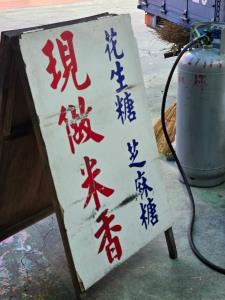 現做米香
花生糖
芝麻糖